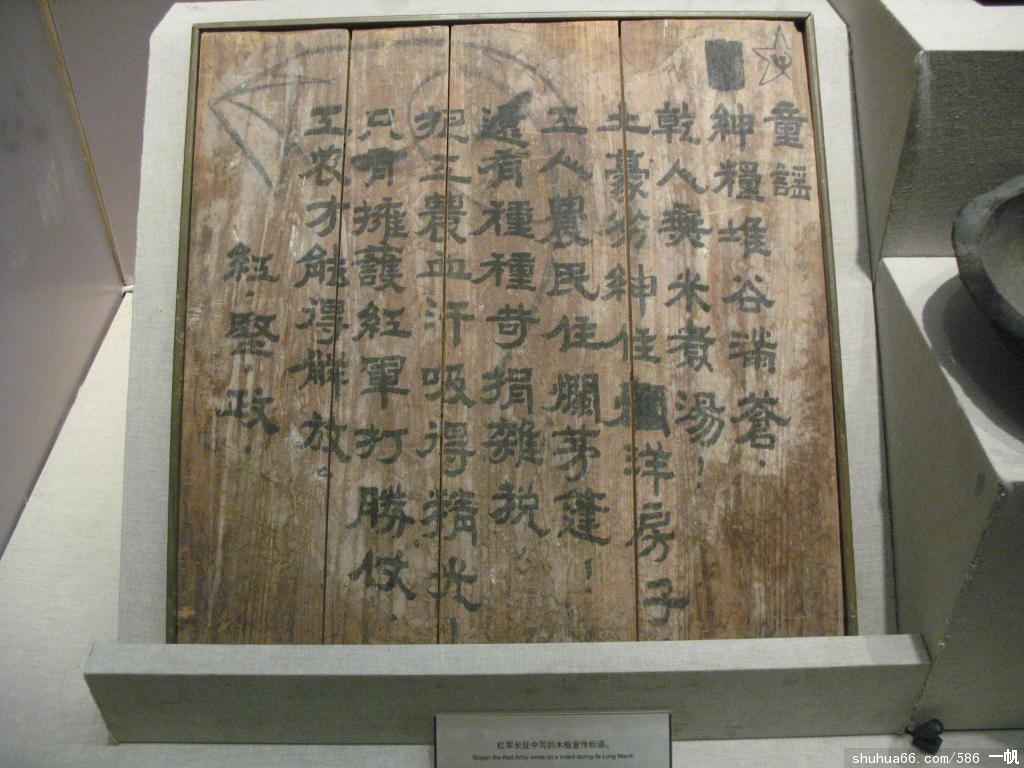 童謡
紳糧堆谷满蒼.
乾人無米煮湯!
土豪劣紳住洋房子
工人農民住爛茅篷!
還有種種苛捐雜税,
把工農血汗吸得精光!
只有擁護紅軍打勝仗.
工农才能得解放。
紅.堅.政.
红军长征中写的木板宣传标语。
Slogan the Red Army wrote on a board during its Long March
shuhua66.com/586 一帆